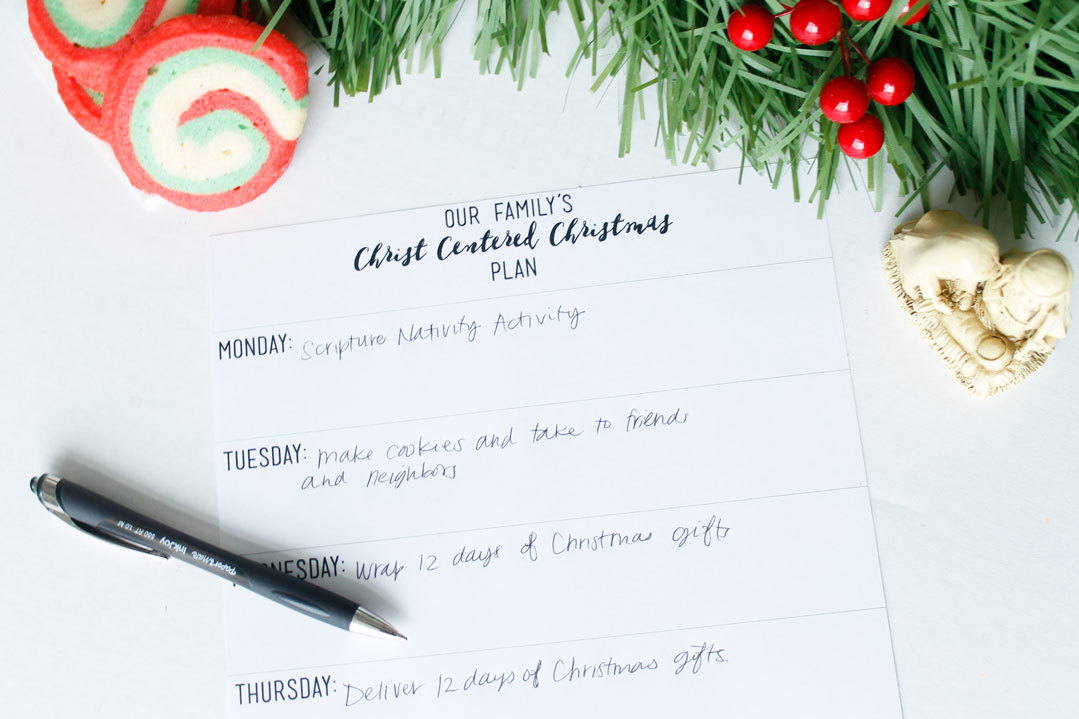 OUR FAMILY'S
Christ Centered Christmas
PLAN
MONDAY: Scripture Nativity Activity
TUESDAY: make cookies and take to friends
and neighbors
NESDAY: Wrap 12 days of Christmas gifts
THURSDAY: Deliver 12 days of Christmas gifts.
PaperMate InkJoy 550 RT 1.0 M